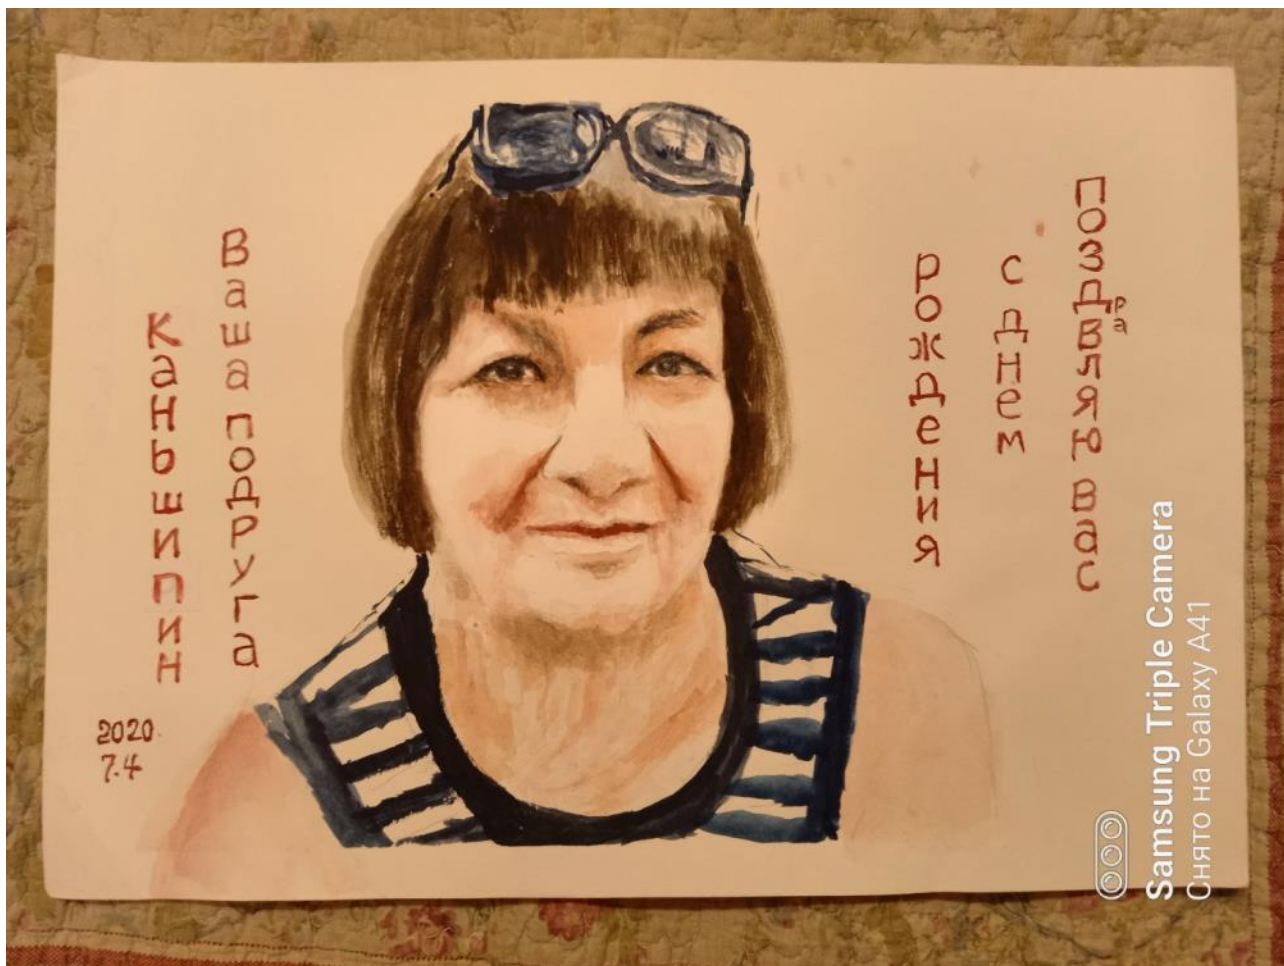 Поздвляю вас
ра
с днем
рождения
Ваша подруга
Каньшипин
2020.
7.4
Samsung Triple Camera
Снято на Galaxy A41